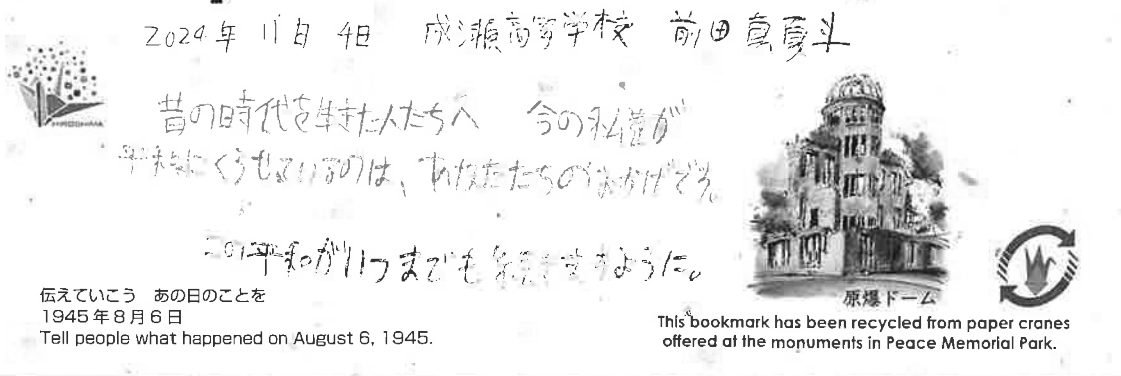 2024年 11月 4日 成瀬高等学校 前田真夏斗
HIROSHIMA
昔の時代を生きた人たちへ 今の私達が
平和にくらせているのは、あなたたちのおかげです。
この平和がいつまでも続きますように。
伝えていこう あの日のことを
1945年8月6日
Tell people what happened on August 6, 1945.
原爆ドーム
This bookmark has been recycled from paper cranes
offered at the monuments in Peace Memorial Park.